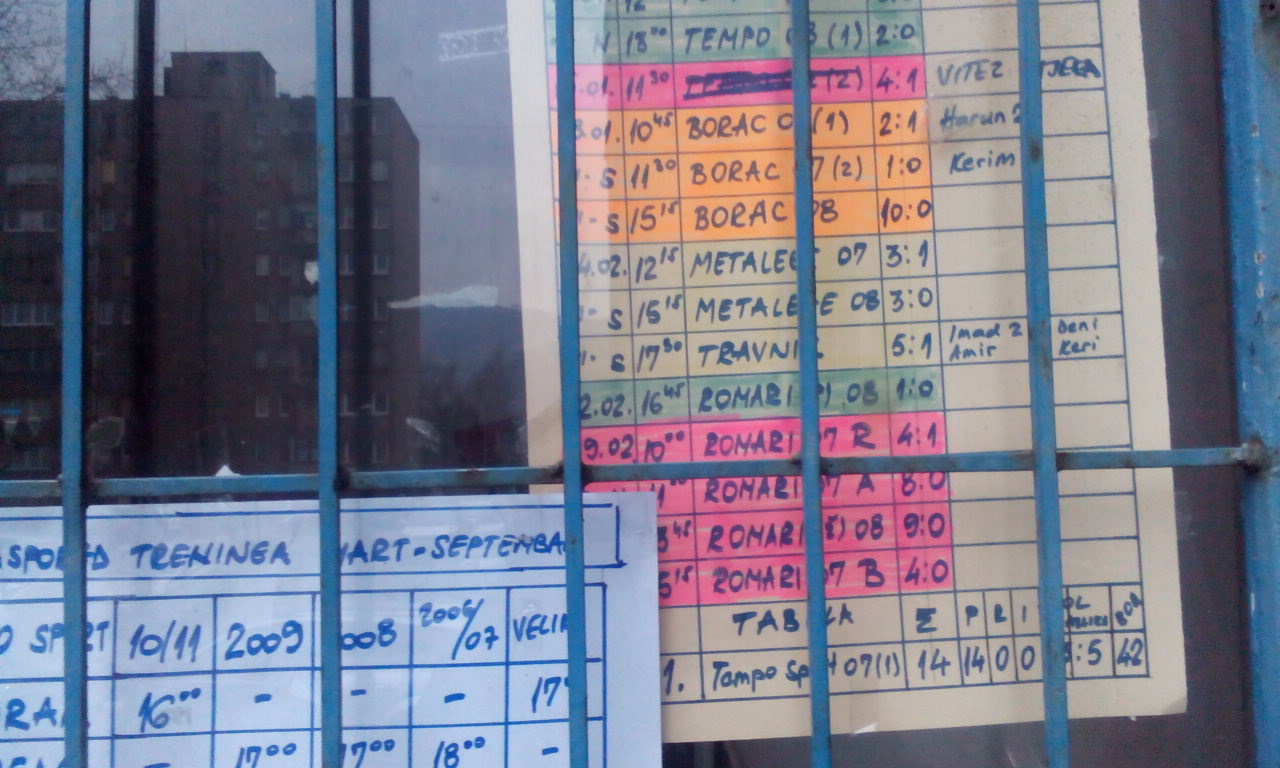 N 18⁰⁰ TEMPO (1) 2:0
.01. 11³⁰ (2) 4:1 VITEZ
.01. 10⁴⁵ BORAC 0 (1) 2:1 Harun 2
- S 11³⁰ BORAC 7 (2) 1:0 Kerim
- S 15¹⁵ BORAC 08 10:0
4.02. 12¹⁵ METALEG 07 3:1
- S 15¹⁵ METALEGE 08 3:0
- S 17³⁰ TRAVNI 5:1 Imad 2 Deni
Amir Keri
2.02. 16⁴⁵ ROMARI P) 08 1:0
9.02. 10⁰⁰ ROMARI 07 R 4:1
11⁰⁰ ROMARI 07 A 8:0
3⁴⁵ ROMARI Š) 08 9:0
5¹⁵ ROMARI 07 B 4:0
TAB LA Σ P R I BOD
1. Tempo Sp t 07(1) 14 14 0 0 :5 42
SPORED TRENINGA MART-SEPTEMBA
O SPORT 10/11 2009 2008 2006/07 VELI
RA 16⁰⁰ - - - 17
- 17⁰⁰ 17⁰⁰ 18⁰⁰ -